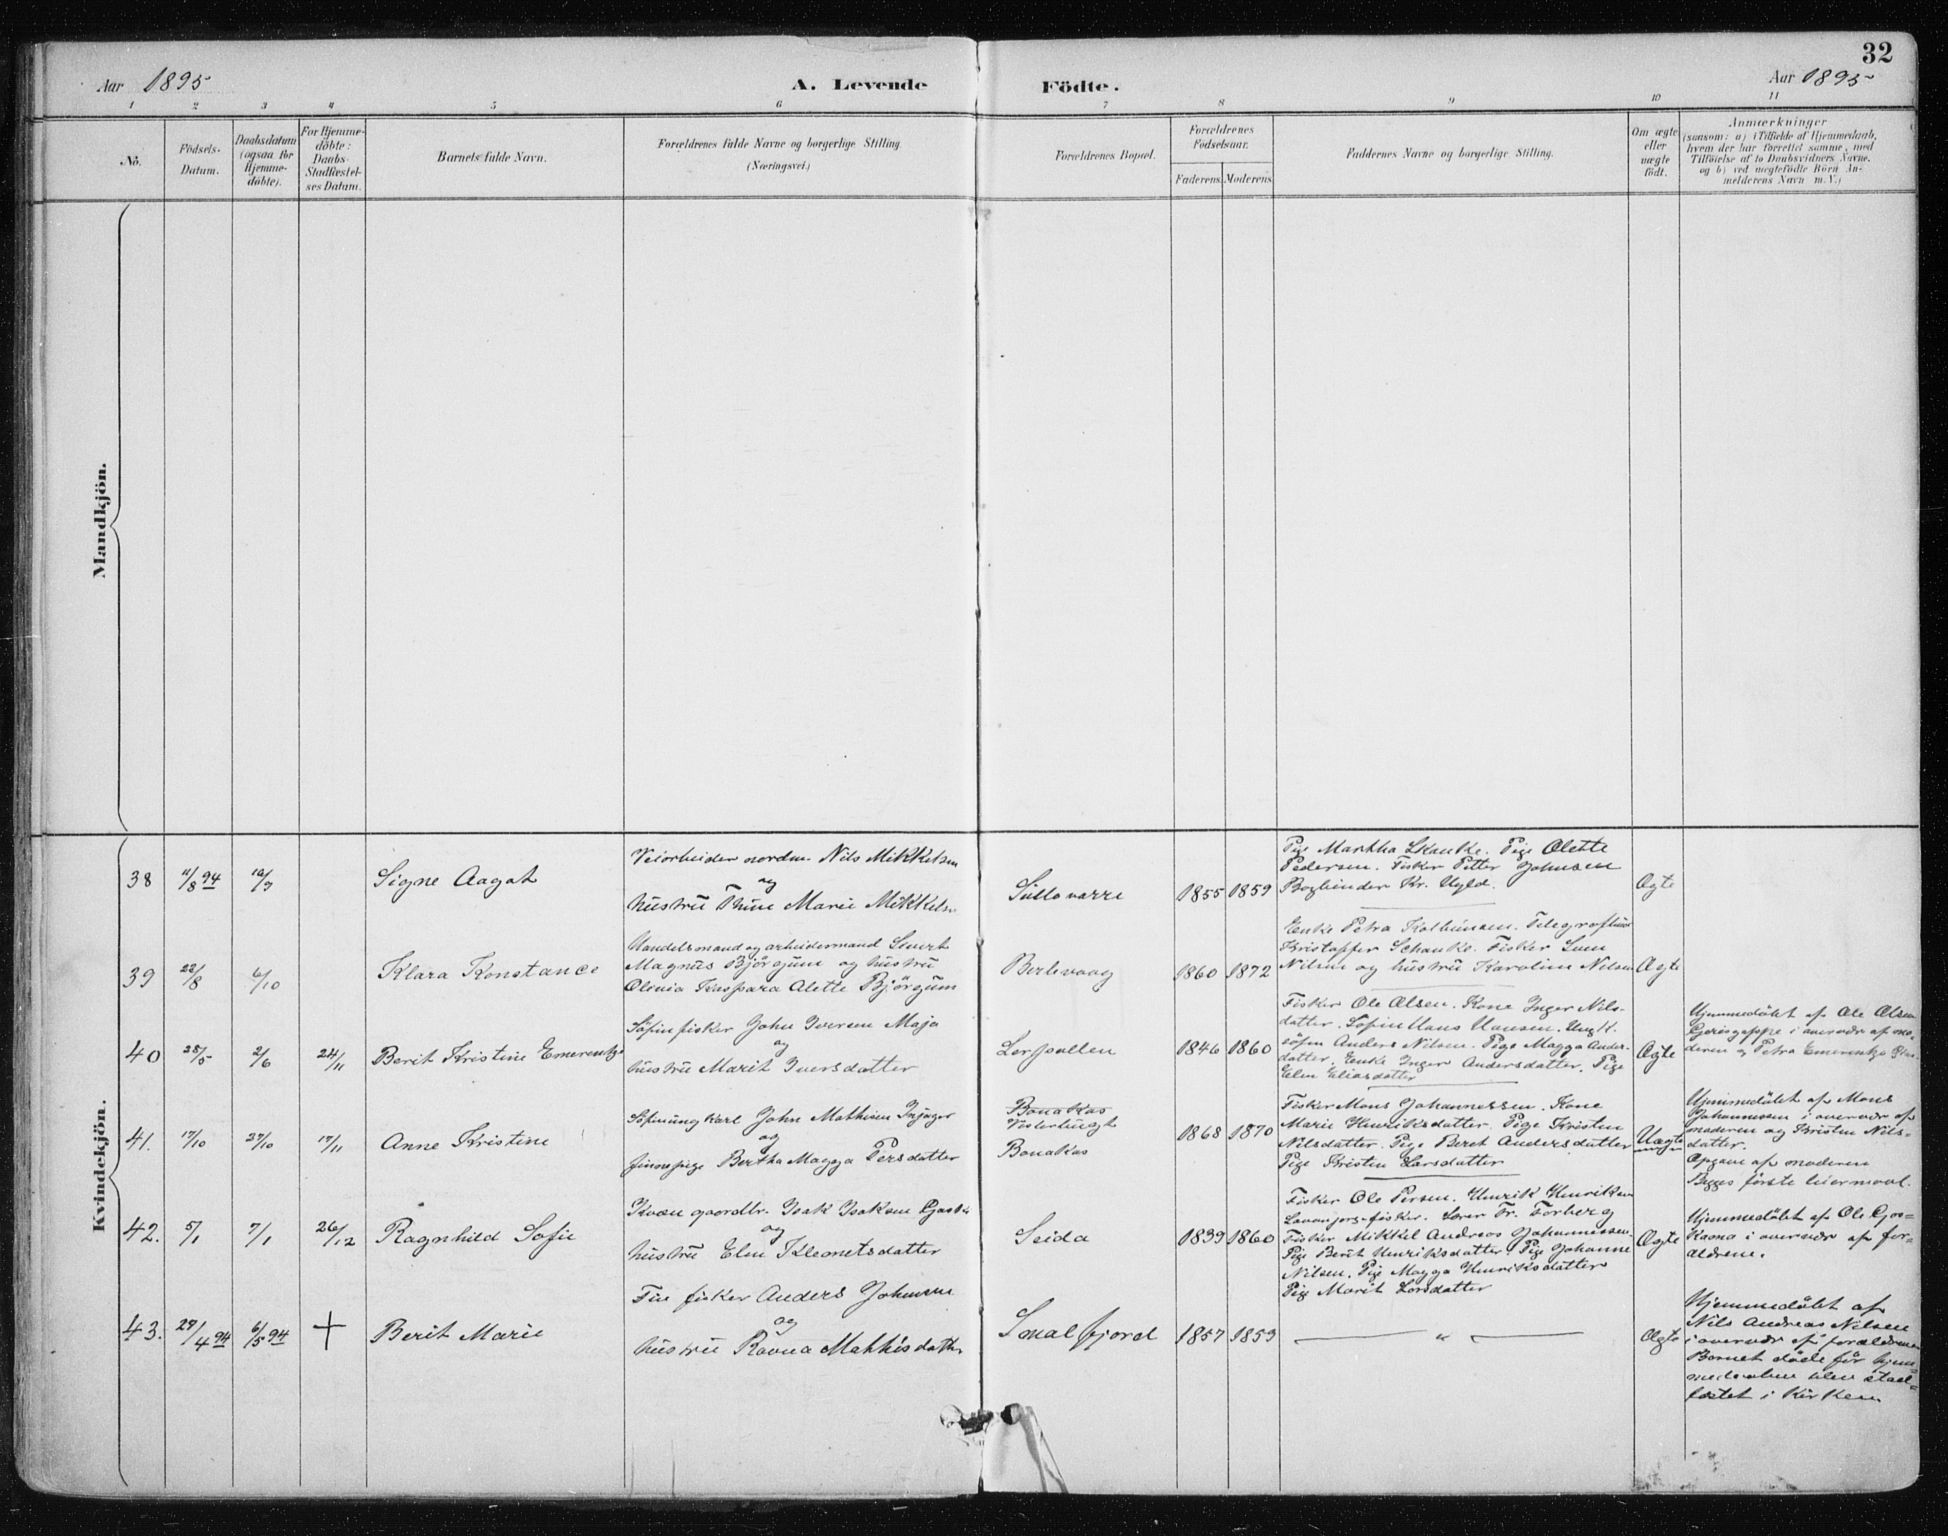 32
Aar 1895
A. Levende
Födte.
Aar 1895
1 2 3 4 5 6 7 8 9 10 11
No.
Födsels-
Datum.
Daabsdatum
(ogsaa for
Hjemme-
döbte).
For Hjemme-
döbte:
Daabs-
Stadfæstel-
ses Datum.
Barnets fulde Navn.
Forældrenes fulde Navne og borgerlige Stilling
(Næringsvei.)
Forældrenes Bopæl.
Forældrenes
Födselsaar.
Faderens. Moderens.
Faddernes Navne og borgerlige Stilling.
Om ægte
eller
uægte
födt.
Anmærkninger
(saasom: a) i Tilfælde af Hjemmedaab,
hvem der har forrettet samme, med
Tilföielse af to Daabsvidners Navne.
og b) ved uægtefödte Börn An-
melderens Navn m. V.)
Mandkjön.
Kvindekjön.
38
11/8 94
Signe Aagot
Veiarbeider nordm. Nils Mikkelsen
og
hustru Thine Marie Mikkels.
1855 1859
Pige Martha Skanke. Pige Olette
Pedersen. Fisker Petter Johnsen
Bogbinder Kr. Hyld.
Ægte
39
22/8
6/10
Klara Konstance
Handelsmand og arbeidermand Sivert
Magnus Björgum og hustru
Olevia Kaspara Alette Björgum
Berlevaag
1860 1872
Enke Petra
Kristoffer Schanke. Fisker
Nilsen og hustru Karoline Nilsen
Ægte
40
28/5
2/6
24/11
Berit Kristine Emerentze
Söfin fisker John Iversen Maja
og
hustru Marit Iversdatter
Lerpollen
1846 1860
Fisker Ole Olsen. Kone Inger Nils-
datter. Söfin Hans Hansen. Ungk.
söfin Anders Nilsen. Pige Magga Anders-
datter. Enke Inger Andersdatter. Pige
Elen Eliasdatter
Ægte
Hjemmedöbt af Ole Olsen
i overvær af mo-
deren og Petra Emerentze
41.
17/10
27/10
17/11
Anne Kristine
Söfinungkarl John Mathisen
og
finnepige Bertha Magga Persdatter
Bonakas
Vesterbugt
Bonakas
1868 1870
Fisker Mons Johannessen. Kone
Marie Henriksdatter. Pige Kristen
Nilsdatter. Pige Beret Andersdatter
Pige Kristen Larsdatter
Uægte
Hjemmedöbt af Mons
Johannesen i overvær af
moderen og Kristen Nils-
datter.
Opgave af moderen
Begges förste leiermaal.
42.
5/1
7/1
26/12
Ragnhild Sofie
Kvæn gaardbr. Isak Isaksen
og
hustru Elen Klemetsdatter
Seida
1839 1860
Fisker Ole Persen. Henrik Henriksen
fisker. Lærer Fr. Forberg
Fisker Mikkel Andreas Johannessen.
Pige Berit Henriksdatter. Pige Johanne
Nilsen. Pige Magga Henriksdatter
Pige Marit Larsdatter
Ægte
Hjemmedöbt af Ole
i overvær af for-
ældrene.
43.
29/4 94
6/5 94
+
Berit Marie
Fin fisker Anders Johnsen
og
hustru Ravna Mathisdatter
Smalfjord
1857 1853
— " —
Ægte
Hjemmedöbt af
Nils Andreas Nilsen
i overvær af forældrene
Barnet döde för hjem-
medaaben blev stad-
fæstet i Kirken